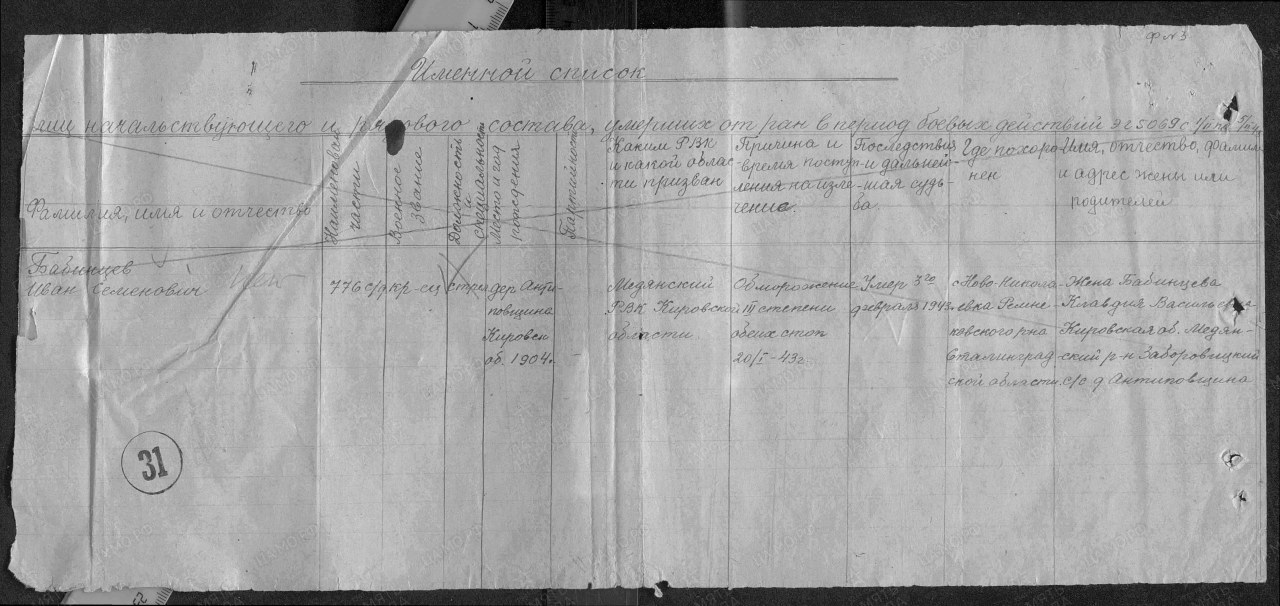 ф №3
Именной список
лиц начальствующего и рядового состава, умерших от ран в период боевых действий
Фамилия, имя и отчество
Наименован. части
Военное звание
Должность и специальность
Место и год рождения
Партийность
Каким РВК
и какой облас-
ти призван
Причина и
время поступ-
ления на изле-
чение.
Последствия
и дальней-
шая судь-
ба.
Где похоро-
нен
Имя, отчество, фамили
и адрес жены или
родителей
Бабинцев
Иван Семенович
776 с/п
кр-ец
стрел
дер Анти-
повщина
Кировск
об. 1904г.
-
Медянский
РВК Кировской
области
Обморожение
III степени
обеих стоп
20/I-43г
Умер 3го
февраля 1943г
с Ново-Никола-
евка
ковского р-на
Сталинград-
ской области.
Жена Бабинцева
Клавдия Васильевна
Кировская об. Медян-
ский р-н Заборовицкий
с/с д Антиповщина
31